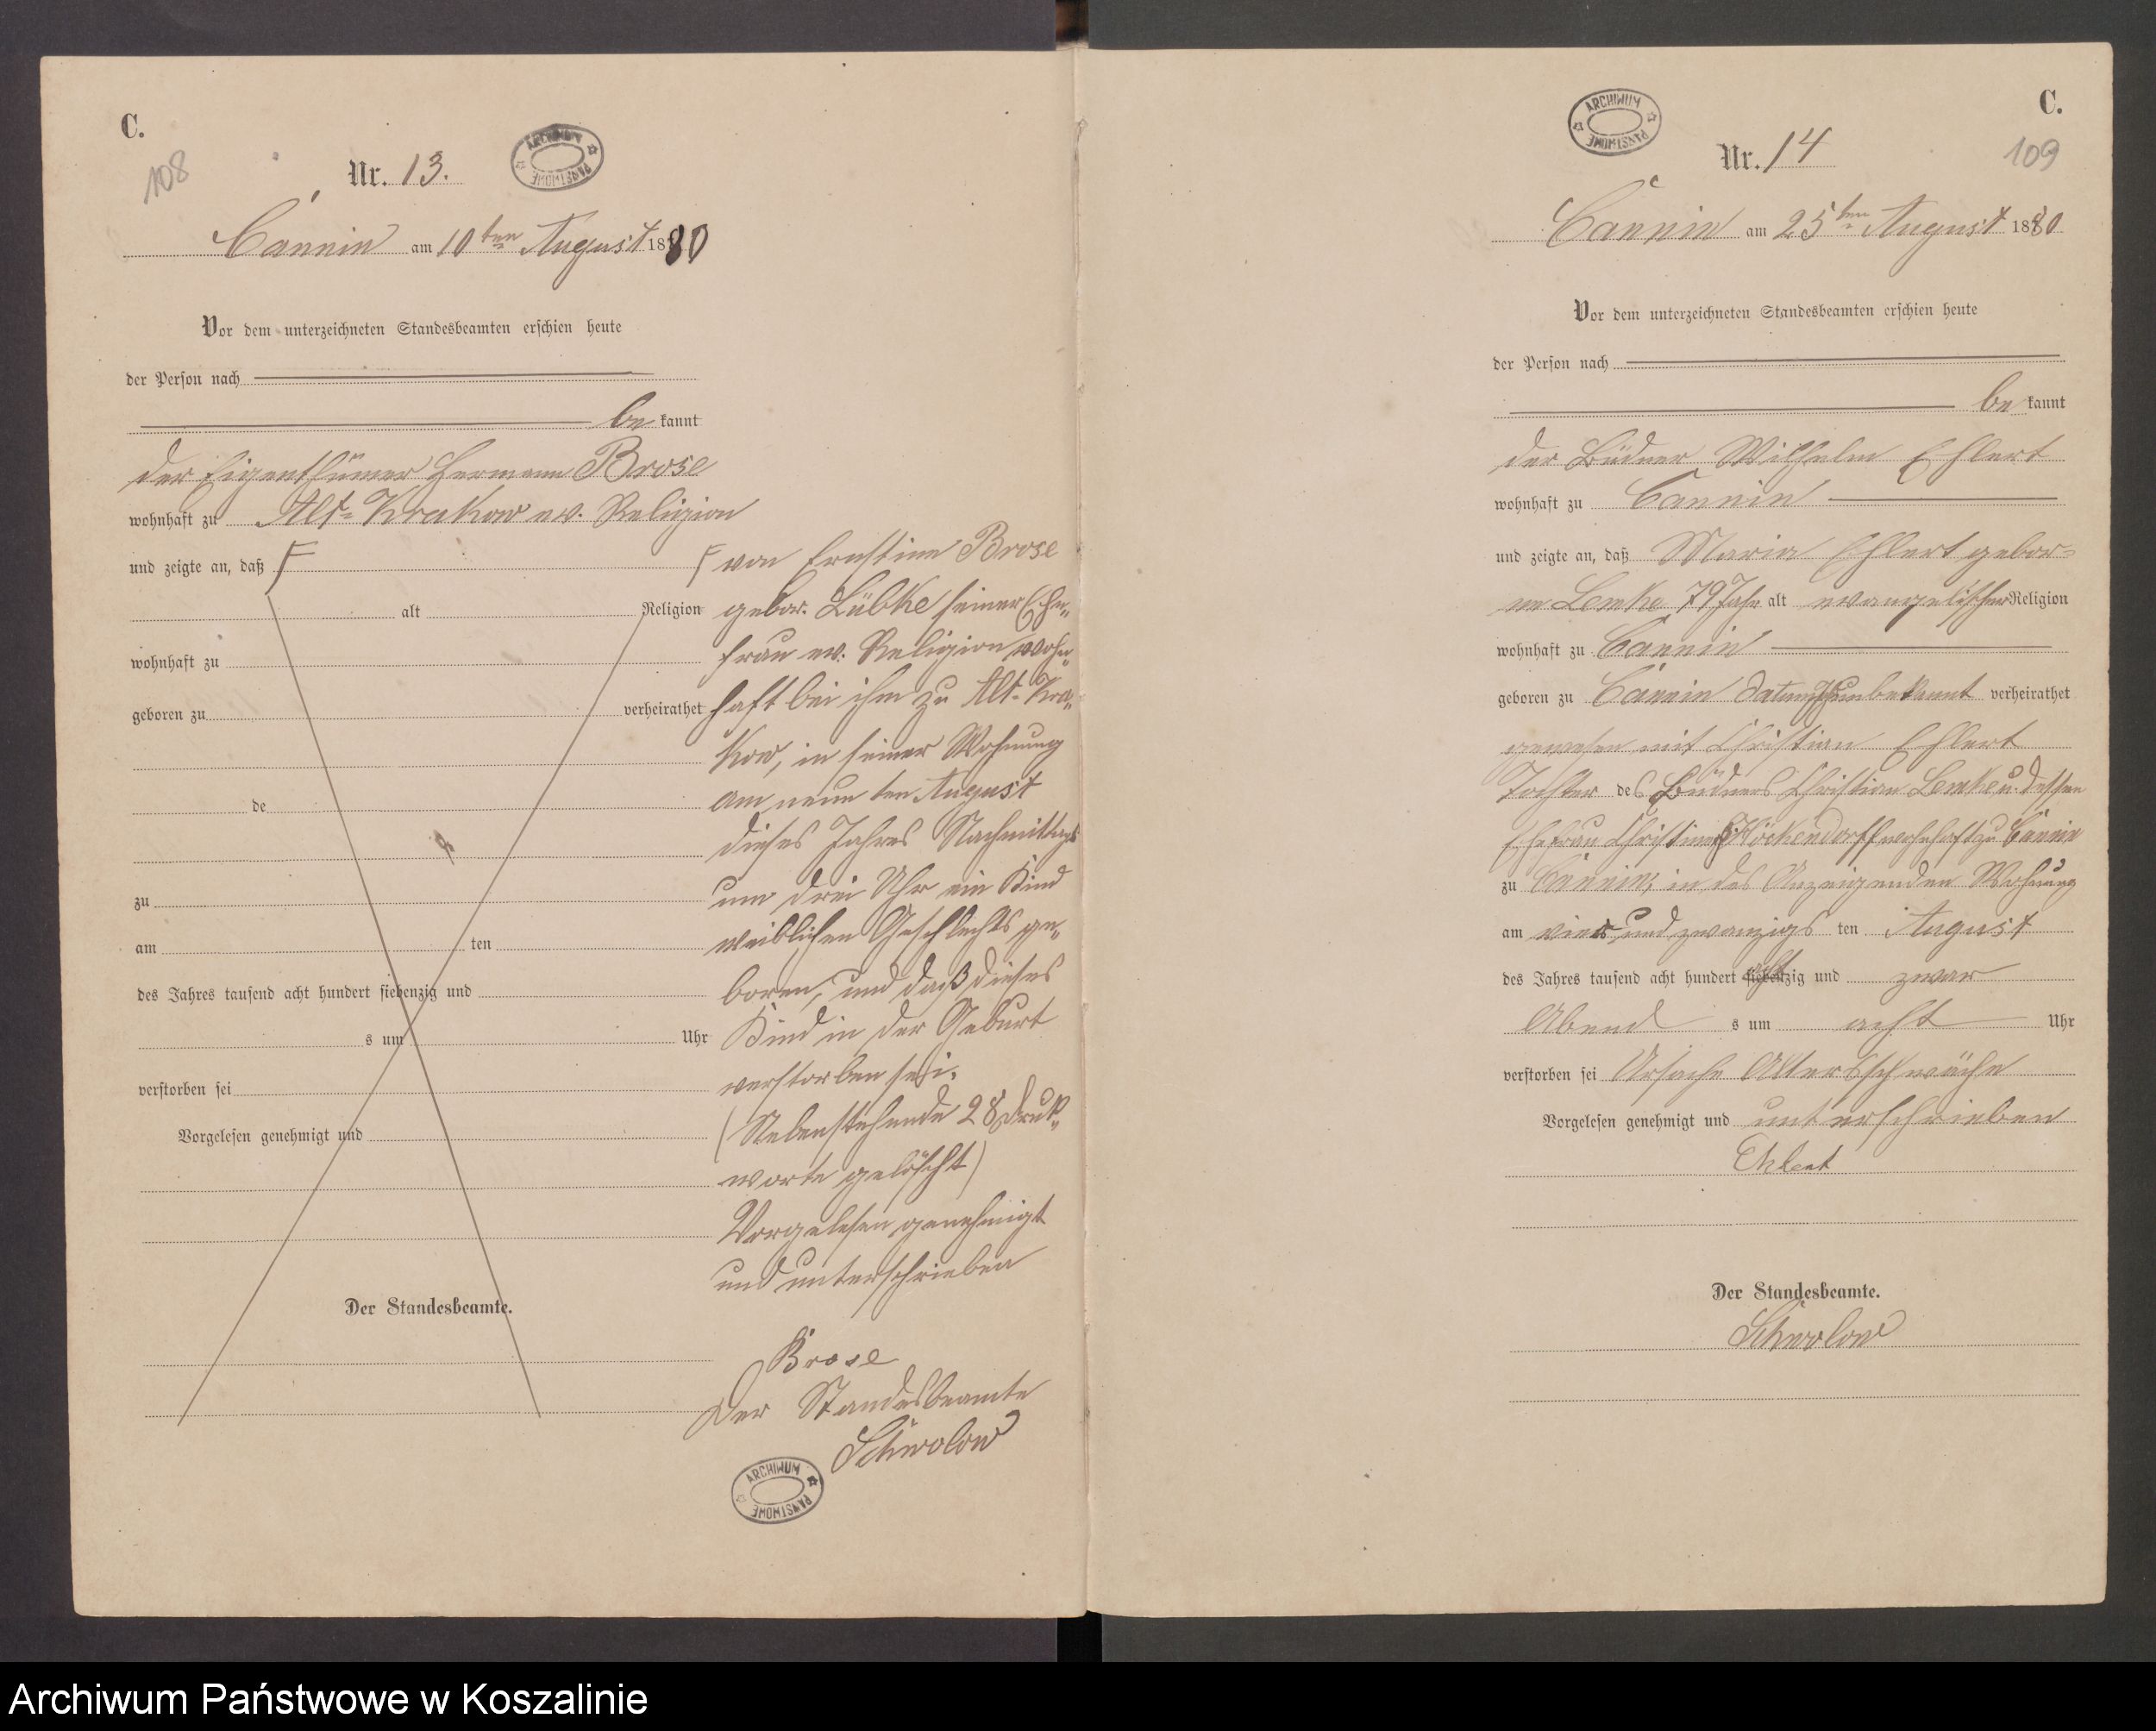 C.
108
Nr. 13.
ARCHIWUM PAŃSTWOWE
Cannin am 10ten August 1880
Vor dem unterzeichneten Standesbeamten erschien heute
der Person nach
be kannt
der Eigenthümer Hermann Brose
wohnhaft zu Alt-Krakow ev. Religion
und zeigte an, daß F
alt Religion
wohnhaft zu
geboren zu verheirathet
de
zu
am ten
des Jahres tausend acht hundert siebenzig und
s um Uhr
verstorben sei
Vorgelesen genehmigt und
Der Standesbeamte.
F von Ernstine Brose
gebor. Lübke seiner Ehe„
frau ev. Religion wohn„
haft bei ihm zu Alt-Kra„
kow, in seiner Wohnung
am neun ten August
dieses Jahres Nachmittags
um drei Uhr ein Kind
weiblichen Geschlechts ge„
boren, und daß dieses
Kind in der Geburt
verstorben sei.
(Nebenstehende 28 Druk„
worte gelöscht)
Vorgelesen genehmigt
und unterschrieben
Brose
Der Standesbeamte
Schwolow
ARCHIWUM PAŃSTWOWE
ARCHIWUM PAŃSTWOWE
C.
109
Nr. 14
Cannin am 25ten August 1880
Vor dem unterzeichneten Standesbeamten erschien heute
der Person nach
be kannt
der Büdner Wilhelm Ehlert
wohnhaft zu Cannin
und zeigte an, daß Maria Ehlert gebor=
ne Lemke 79 Jahr alt evangelischer Religion
wohnhaft zu Cannin
geboren zu Cannin Datum unbekannt verheirathet
gewesen mit Christian Ehlert
Tochter des Büdners Christian Lemke u. dessen
Ehefrau Christine Höckendorff wohnhaft zu Cannin
zu Cannin, in des Anzeigenden Wohnung
am vier und zwanzigs ten August
des Jahres tausend acht hundert siebenzig und zwar
Abend s um acht Uhr
verstorben sei Ursache Altersschwäche
Vorgelesen genehmigt und unterschrieben
Ehlert
Der Standesbeamte.
Schwolow
Archiwum Państwowe w Koszalinie